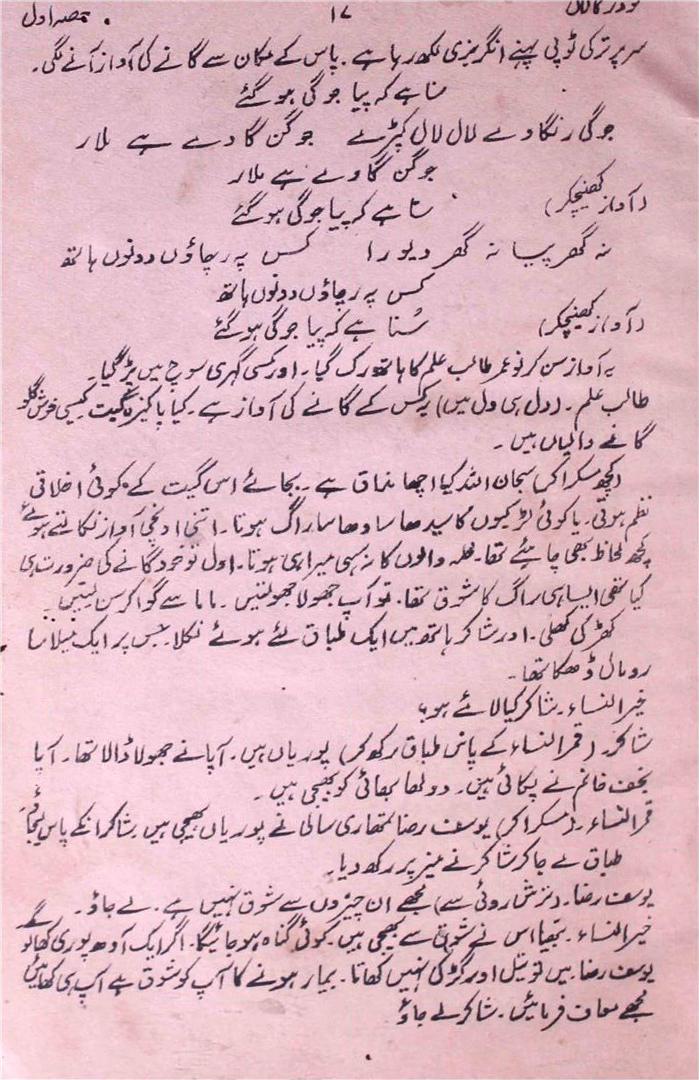 حصہ اول
۱۷
سر پر ترکی ٹوپی پہنے انگریزی لکھ رہا ہے۔ پاس کے مکان سے گانے کی آواز آنے لگی۔
سنا ہے کہ پیا جوگی ہو گئے
جوگی رنگاوے لال لال کپڑے جوگن گاوے ہے ملار
جوگن گاوے ہے ملار
(آواز کھینچکر) سنا ہے کہ پیا جوگی ہو گئے
نہ گھر پیا نہ گھر دیورا کس پہ رچاؤں دونوں ہاتھ
کس پہ رچاؤں دونوں ہاتھ
(آواز کھینچکر) سُنا ہے کہ پیا جوگی ہو گئے
یہ آواز سن کر نو عمر طالب علم کا ہاتھ رک گیا۔ اور کسی گہری سوچ میں پڑ گیا۔
طالب علم۔ (دل ہی دل میں) یہ کس کے گانے کی آواز ہے۔ کیا پاکیزہ گیت کیسی خوش گلو
گانے والیاں ہیں۔
(کچھ مسکرا کر) سبحان اللہ کیا اچھا مذاق ہے۔ بجائے اس گیت کے کوئی اخلاقی
نظم ہوتی۔ یا کوئی لڑکیوں کا سیدھا سادھا سا راگ ہوتا۔ اتنی اونچی آواز نکالتے ہوئے
کچھ لحاظ بھی چاہئے تھا۔ محلہ والوں کا نہ سہی میرا ہی ہوتا۔ اول تو خود گانے کی ضرورت ہی
کیا تھی ایسا ہی راگ کا شوق تھا۔ تو آپ جھولا جھولتیں۔ ماما سے گوا کر سن لیتیں۔
کھڑکی کھلی۔ اور شاکر ہاتھ میں ایک طباق لئے ہوئے نکلا۔ جس پر ایک میلا سا
رومال ڈھکا تھا۔
خیر النساء۔ شاکر کیا لائے ہو؟
شاکر۔ (قمر النساء کے پاس طباق رکھ کر) پوریاں ہیں۔ آپا نے جھولا ڈالا تھا۔ آپا
نجف خانم نے پکائی ہیں۔ دولھا بھائی کو بھیجی ہیں۔
قمر النساء۔ (مسکرا کر) یوسف رضا تمھاری سالی نے پوریاں بھیجی ہیں۔ شاکر انکے پاس لیجاؤ۔
طباق لے جا کر شاکر نے میز پر رکھ دیا۔
یوسف رضا۔ (ترش روئی سے) مجھے ان چیزوں سے شوق نہیں ہے۔ لے جاؤ۔
خیر النساء۔ بھیا اس نے شوق سے بھیجی ہیں۔ کوئی گناہ ہو جائیگا۔ اگر ایک آدھ پوری کھا لو گے
یوسف رضا۔ میں تو تیل اور گڑ کی نہیں کھاتا۔ بیمار ہونے کا آپ کو شوق ہے آپ ہی کھائیں
مجھے معاف فرمائیں۔ شاکر لے جاؤ